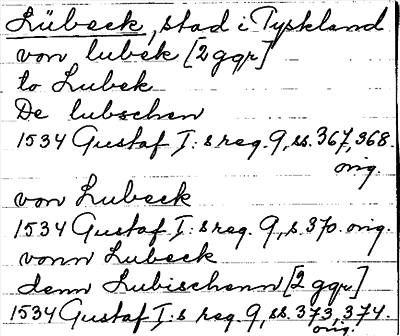 Lübeck, stad i Tyskland
von lubek [2 ggr]
to Lubek
De lubschen
1534 Gustaf I:s reg. 9, ss. 367, 368.
orig.
von Lubeck
1534 Gustaf I:s reg. 9, s. 370. orig.
vonn Lubeck
denn Lubischenn [2 ggr]
1534 Gustaf I:s reg. 9, ss. 373, 374.
orig.